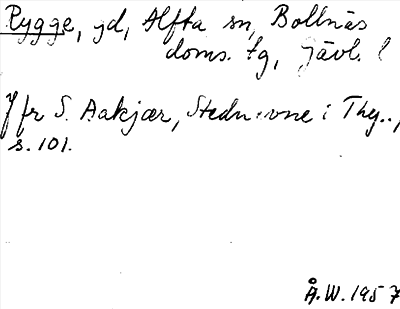 Rygge, gd, Alfta sn, Bollnäs
doms. tg, Gävl. l
Jfr S. Aakjær, Stednavne i Thy..,
s. 101.
Å.W. 1957